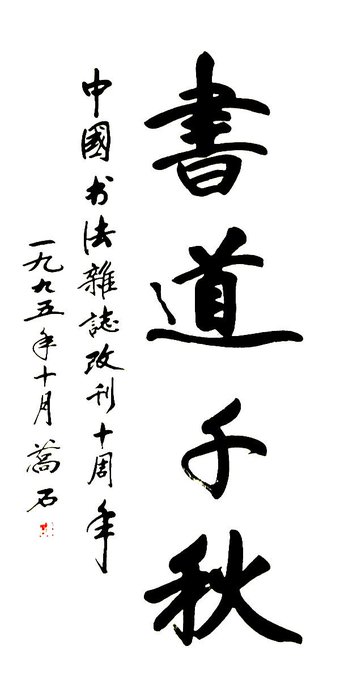 書道千秋
中國书法雜誌改刊十周年
一九九五年十月 蒿石